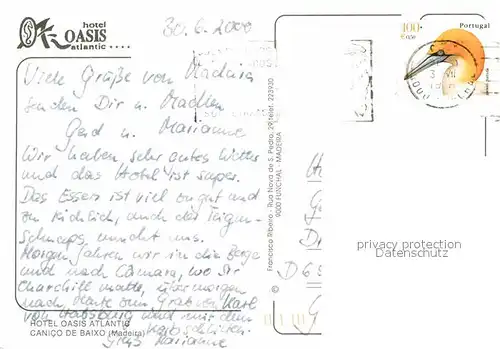 hotel
OASIS
atlantic ••••
30.6.2000
100
Esc.
Portugal
Viele Grüße von Madeira
senden Dir u. Madlen
Gerd u. Marianne
Wir haben sehr gutes Wetter
und das Hotel ist super.
Das Essen ist viel zu gut und
zu reichlich, auch der Feigen-
schnaps mundet uns.
Morgen fahren wir in die Berge
und nach Câmara, wo Sir
Churchill malte, übermorgen
nach Monte zum Grab von Karl
von Habsburg und mit dem
Korbschlitten.
Gruß Marianne
HOTEL OASIS ATLANTIC
CANIÇO DE BAIXO (Madeira)
© Francisco Ribeiro - Rua Nova de S. Pedro, 29, telef. 223930
9000 FUNCHAL - MADEIRA
privacy protection
Datenschutz
D 65